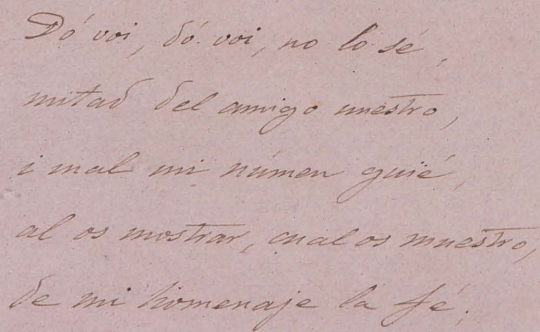 Dó voi, dó voi, no lo sé,
mitad del amigo nuestro,
i mal mi númen guié,
al os mostrar, cual os muestro,
de mi homenaje la fé.